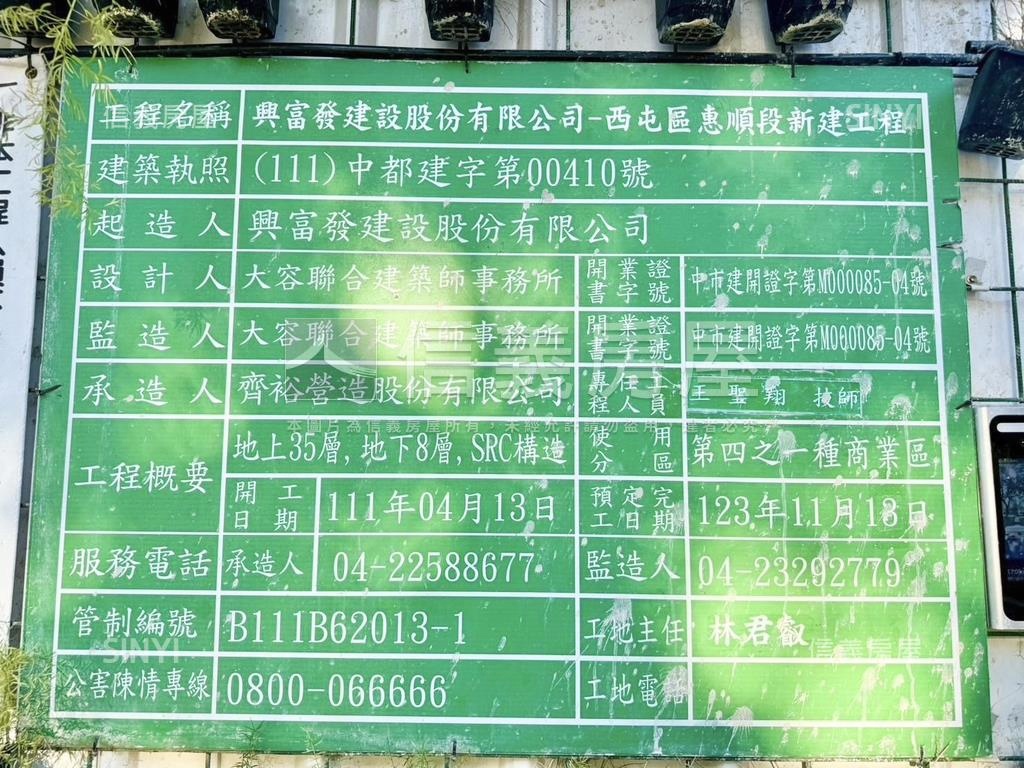 工程名稱 興富發建設股份有限公司-西屯區惠順段新建工程
建築執照 (111)中都建字第00410號
起造人 興富發建設股份有限公司
設計人 大容聯合建築師事務所 開業證書字號 中市建開證字第M000085-04號
監造人 大容聯合建築師事務所 開業證書字號 中市建開證字第M000085-04號
承造人 齊裕營造股份有限公司 專任工程人員 王聖翔 技師
工程概要 地上35層,地下8層,SRC構造 使用分區 第四之一種商業區
開工日期 111年04月13日 預定完工日期 123年11月13日
服務電話 承造人 04-22588677 監造人 04-23292779
管制編號 B111B62013-1 工地主任 林君叡
公害陳情專線 0800-066666 工地電話
信義房屋
SINYI
信義房屋
本圖片為信義房屋所有,未經允許請勿盜用,違者必究
SINYI
信義房屋